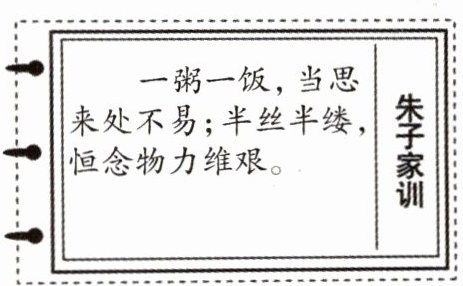 一粥一饭，当思
来处不易；半丝半缕，
恒念物力维艰。
朱子家训